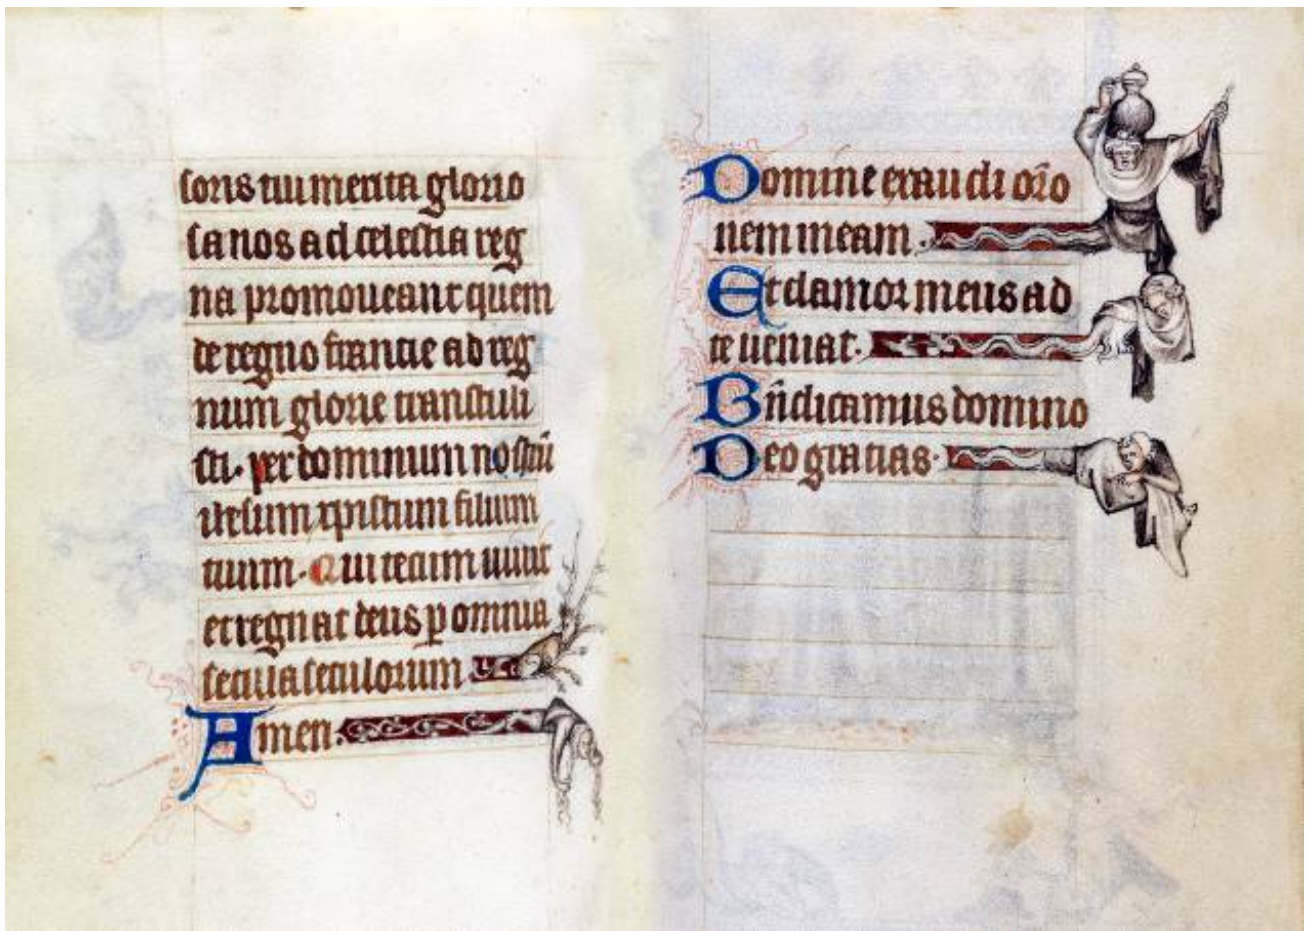 soris tui merita glorio
sa nos ad celestia reg
na promoueant quem
de regno francie ad reg
num glorie transtuli
sti. per dominum nostrū
ihesum xpistum filium
tuum. Qui tecum uiuit
et regnat deus ꝑ omnia
secula seculorum
Amen.
Domine exaudi orō
nem meam.
Et clamor meus ad
te ueniat.
Bn̄dicamus domino
Deo gratias.